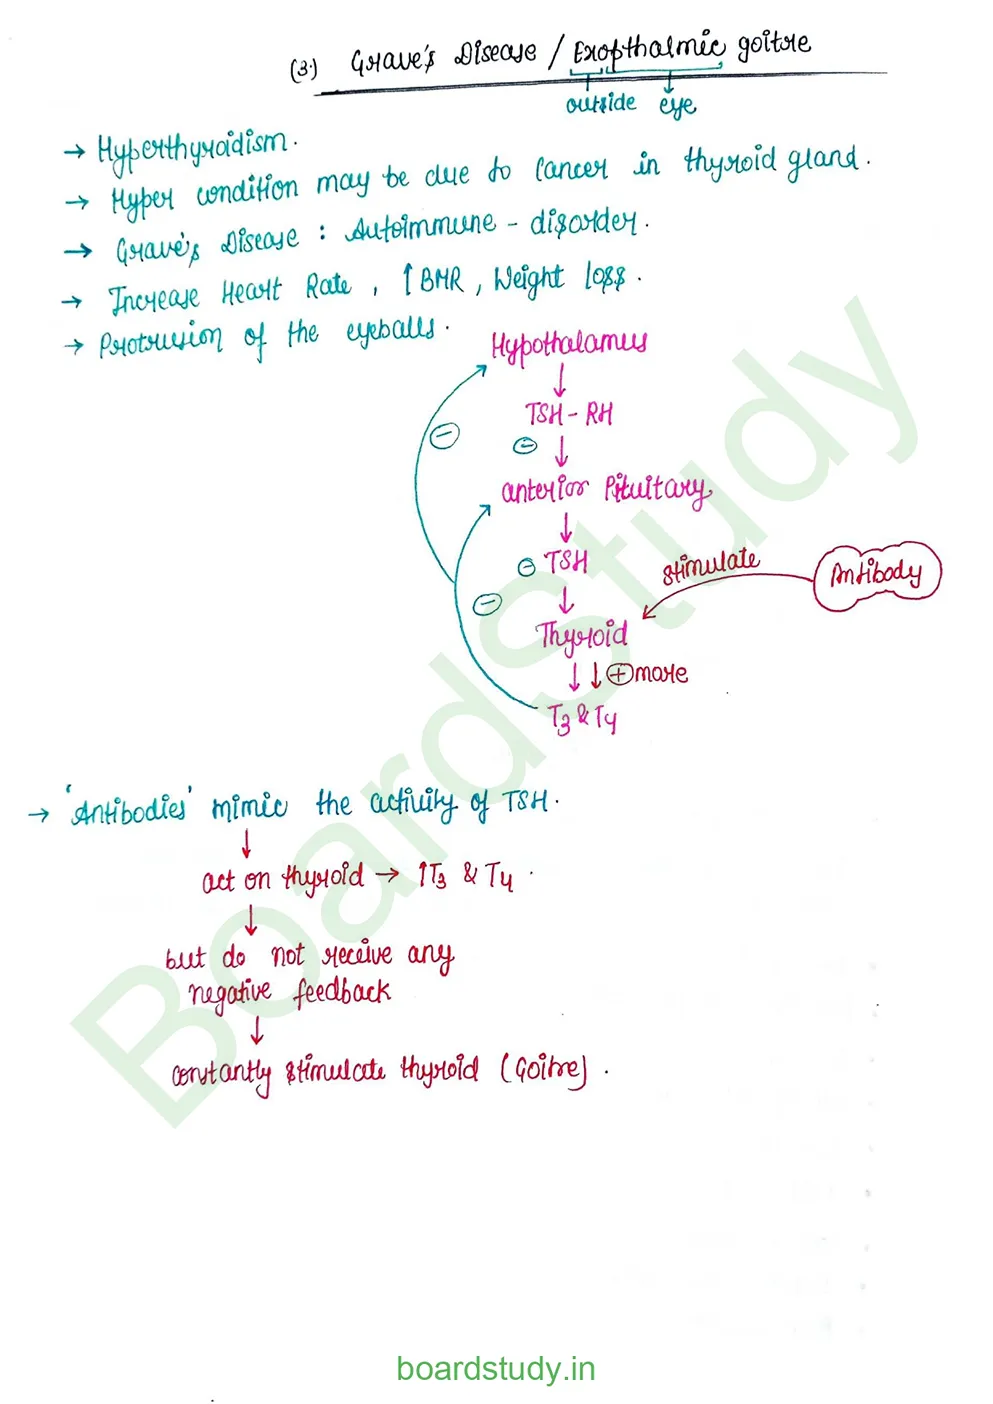 (3.) Grave's Disease / Exopthalmic goitre
outside eye
→ Hyperthyroidism.
→ Hyper condition may be due to cancer in thyroid gland.
→ Grave's Disease : Autoimmune - disorder.
→ Increase Heart Rate, ↑BMR, Weight loss.
→ Protrusion of the eyeballs.
Hypothalamus
↓
TSH - RH
⊖ ↓
⊖
anterior Pituitary
↓
⊖ TSH
stimulate
Antibody
↓
⊖
Thyroid
↓ ↓ ⊕ more
T3 & T4
→ 'Antibodies' mimic the activity of TSH.
↓
act on thyroid → ↑T3 & T4.
↓
but do not receive any
negative feedback
↓
constantly stimulate thyroid (Goitre).
BoardStudy
boardstudy.in